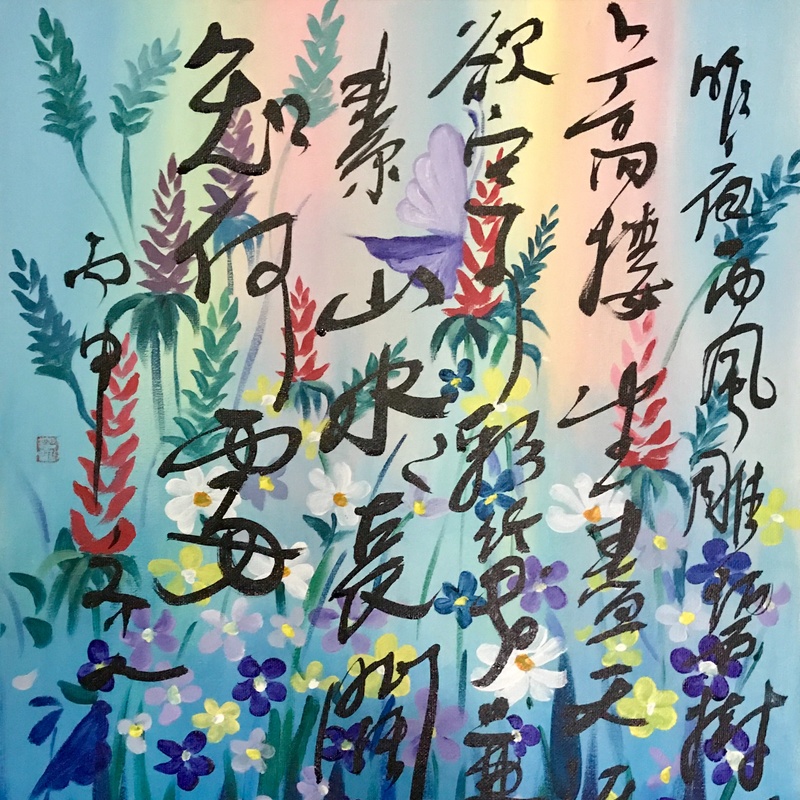 昨夜西風雕碧樹
上高樓望盡天涯
欲寄彩箋兼
素山水長闊
知何處
丙申